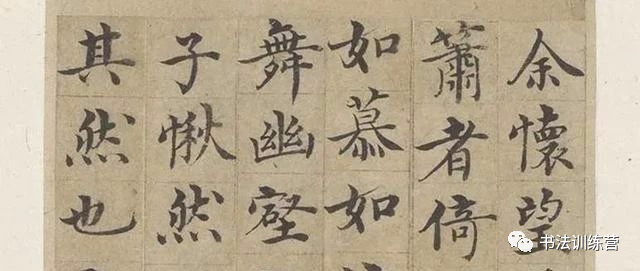 余懷望
簫者倚
如慕如
舞幽壑
子愀然
其然也
书法训练营